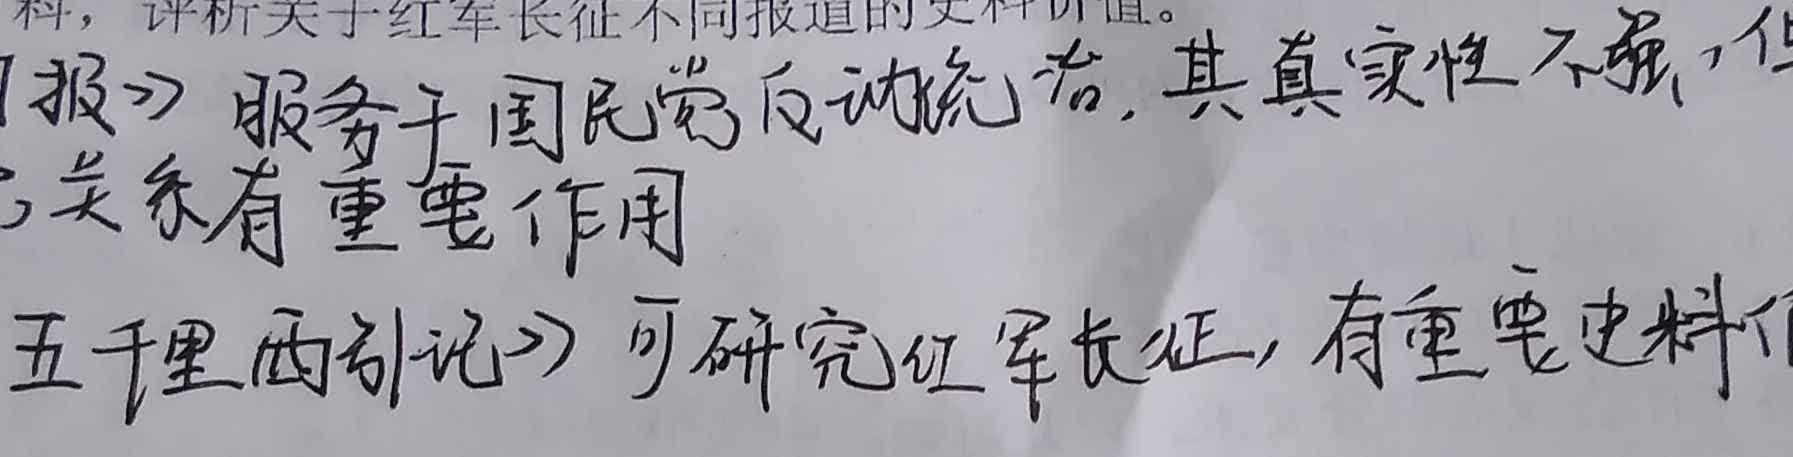 料，评析关于红军长征不同报道的史料价值。
报》服务于国民党反动统治，其真实性不强，但
关系有重要作用
五千里西引记》可研究红军长征，有重要史料价